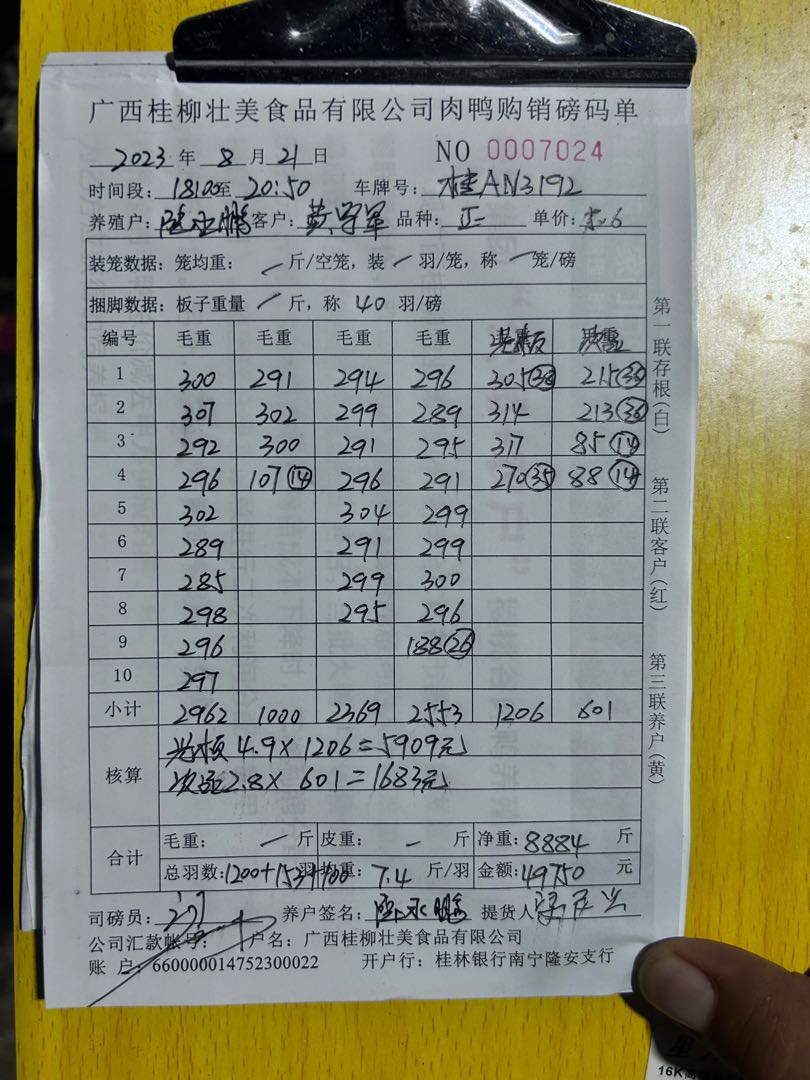 广西桂柳壮美食品有限公司肉鸭购销磅码单
2023 年 8 月 21 日 NO 0007024
时间段: 18:00至 20:50 车牌号: 桂AN3192
养殖户: 鹏 客户: 黄守军 品种: 正 单价: 5.6
装笼数据: 笼均重: / 斤/空笼, 装 / 羽/笼, 称 / 笼/磅
捆脚数据: 板子重量 / 斤, 称 40 羽/磅
编号 毛重 毛重 毛重 毛重
1 300 291 294 296 305(38) 215(35)
2 307 302 299 289 314 213(36)
3 292 300 291 295 317 85(14)
4 296 107(14) 296 291 270(35) 88(14)
5 302 304 299
6 289 291 299
7 285 299 300
8 298 295 296
9 296 188(26)
10 297
小计 2962 1000 2369 2553 1206 601
核算
4.9×1206=5909元
次品2.8× 601=1683元
合计
毛重: — 斤 皮重: — 斤 净重: 8884 斤
总羽数: 1200+153+100 羽 均重: 7.4 斤/羽 金额: 49750 元
司磅员: 养户签名: 永鹏 提货人
公司汇款帐号: 户名: 广西桂柳壮美食品有限公司
账 户: 660000014752300022 开户行: 桂林银行南宁隆安支行
第一联存根(白)
第二联客户(红)
第三联养户(黄)
16K